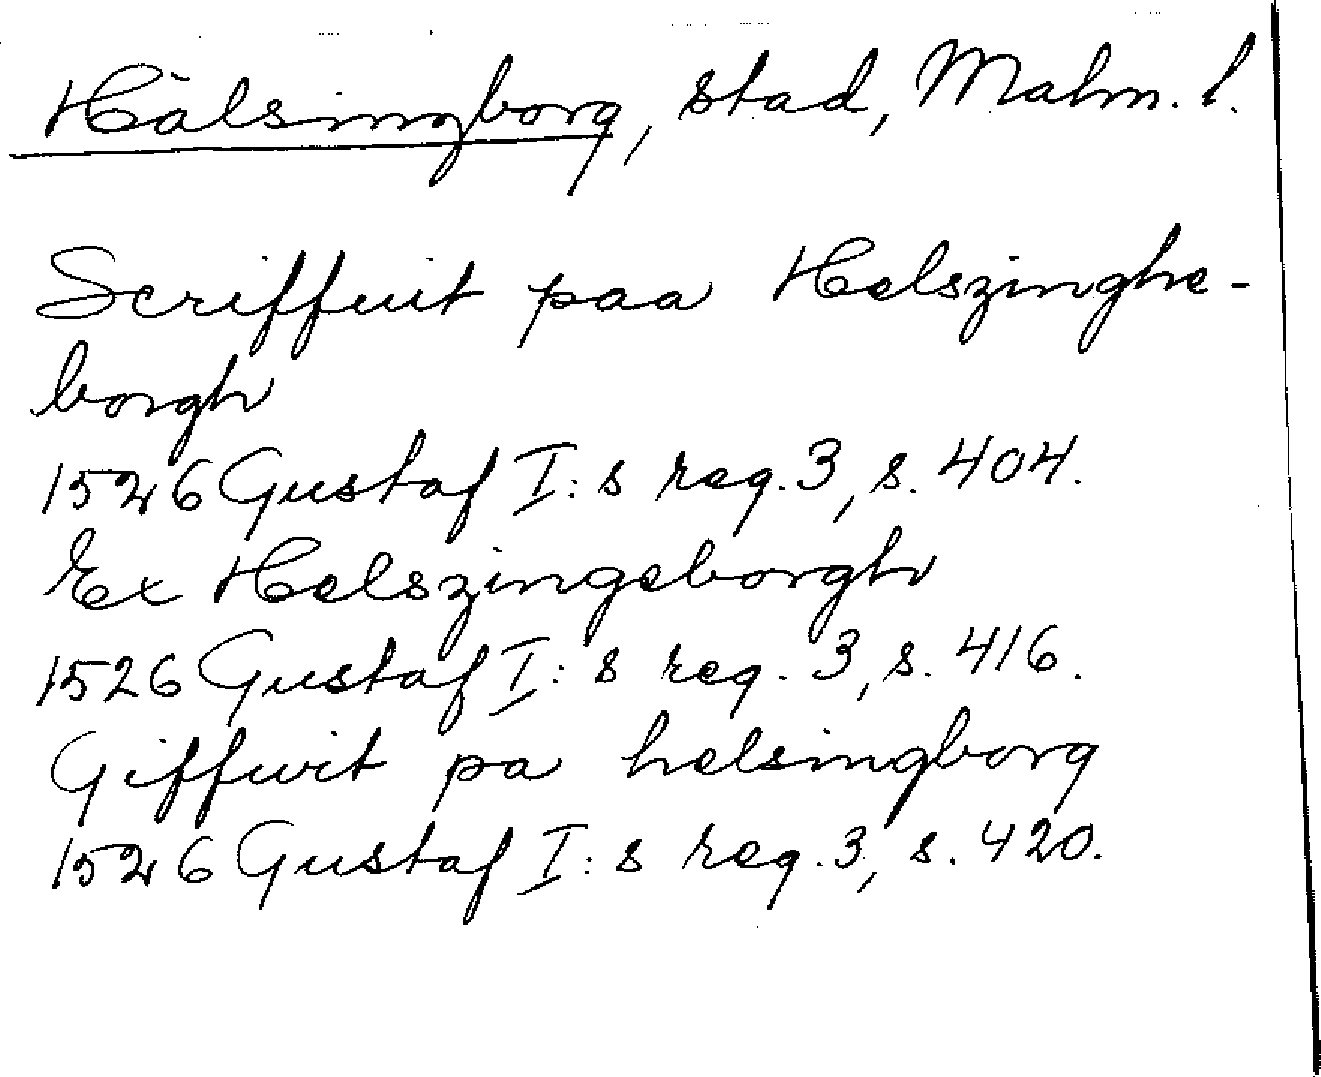 Hälsingborg, stad, Malm. l.
Scriffuit paa Helszinghe-
borgh
1526 Gustaf I:s reg. 3, s. 404.
Ex Helszingeborgh
1526 Gustaf I:s reg. 3, s. 416.
Giffwit pa helsingborg
1526 Gustaf I:s reg. 3, s. 420.